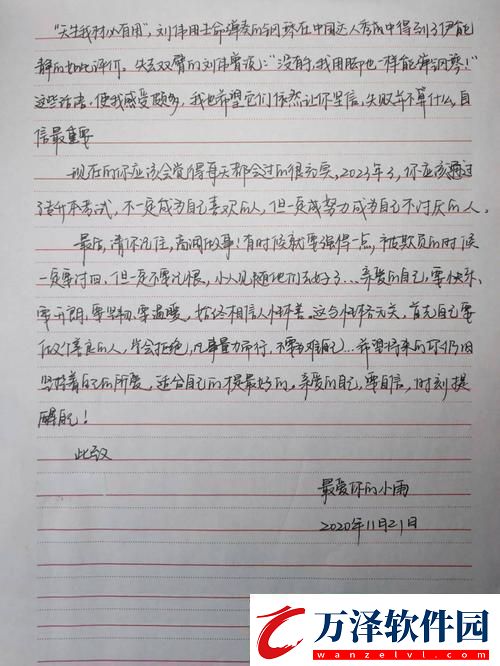 “天生我材必有用”，刘伟用生命弹奏的钢琴在中国达人秀成中得到了伊能
静的如此评价。失去双臂的刘伟曾说：“没有手，我用脚也一样能弹钢琴！”
这些话语，使我感受颇多，我也希望它们依然让你坚信，失败并不算什么，自
信最重要
现在的你应该会觉得每天都会过的很充实，2023年了，你应该通过
专升本考试，不一定成为自己喜欢的人，但一定成努力成为自己不讨厌的人。
最后，请你记住，高调做事！有时候就要强得一点，被欺负的时候
一定要讨回，但一定不要记恨，小人见随他们去好了…亲爱的自己，要快乐、
要开朗、要坚韧、要温暖，始终相信人性本善。这与性格无关，首先自己要
做个善良的人，学会拒绝，凡事量力而行，不要为难自己…希望将来的你仍旧
坚持着自己的所爱，适合自己的才是最好的。亲爱的自己，要自信，时刻提
醒自己！
此致
最爱你的小雨
2020年11月21日
万泽软件园
www.wanzelvl.com